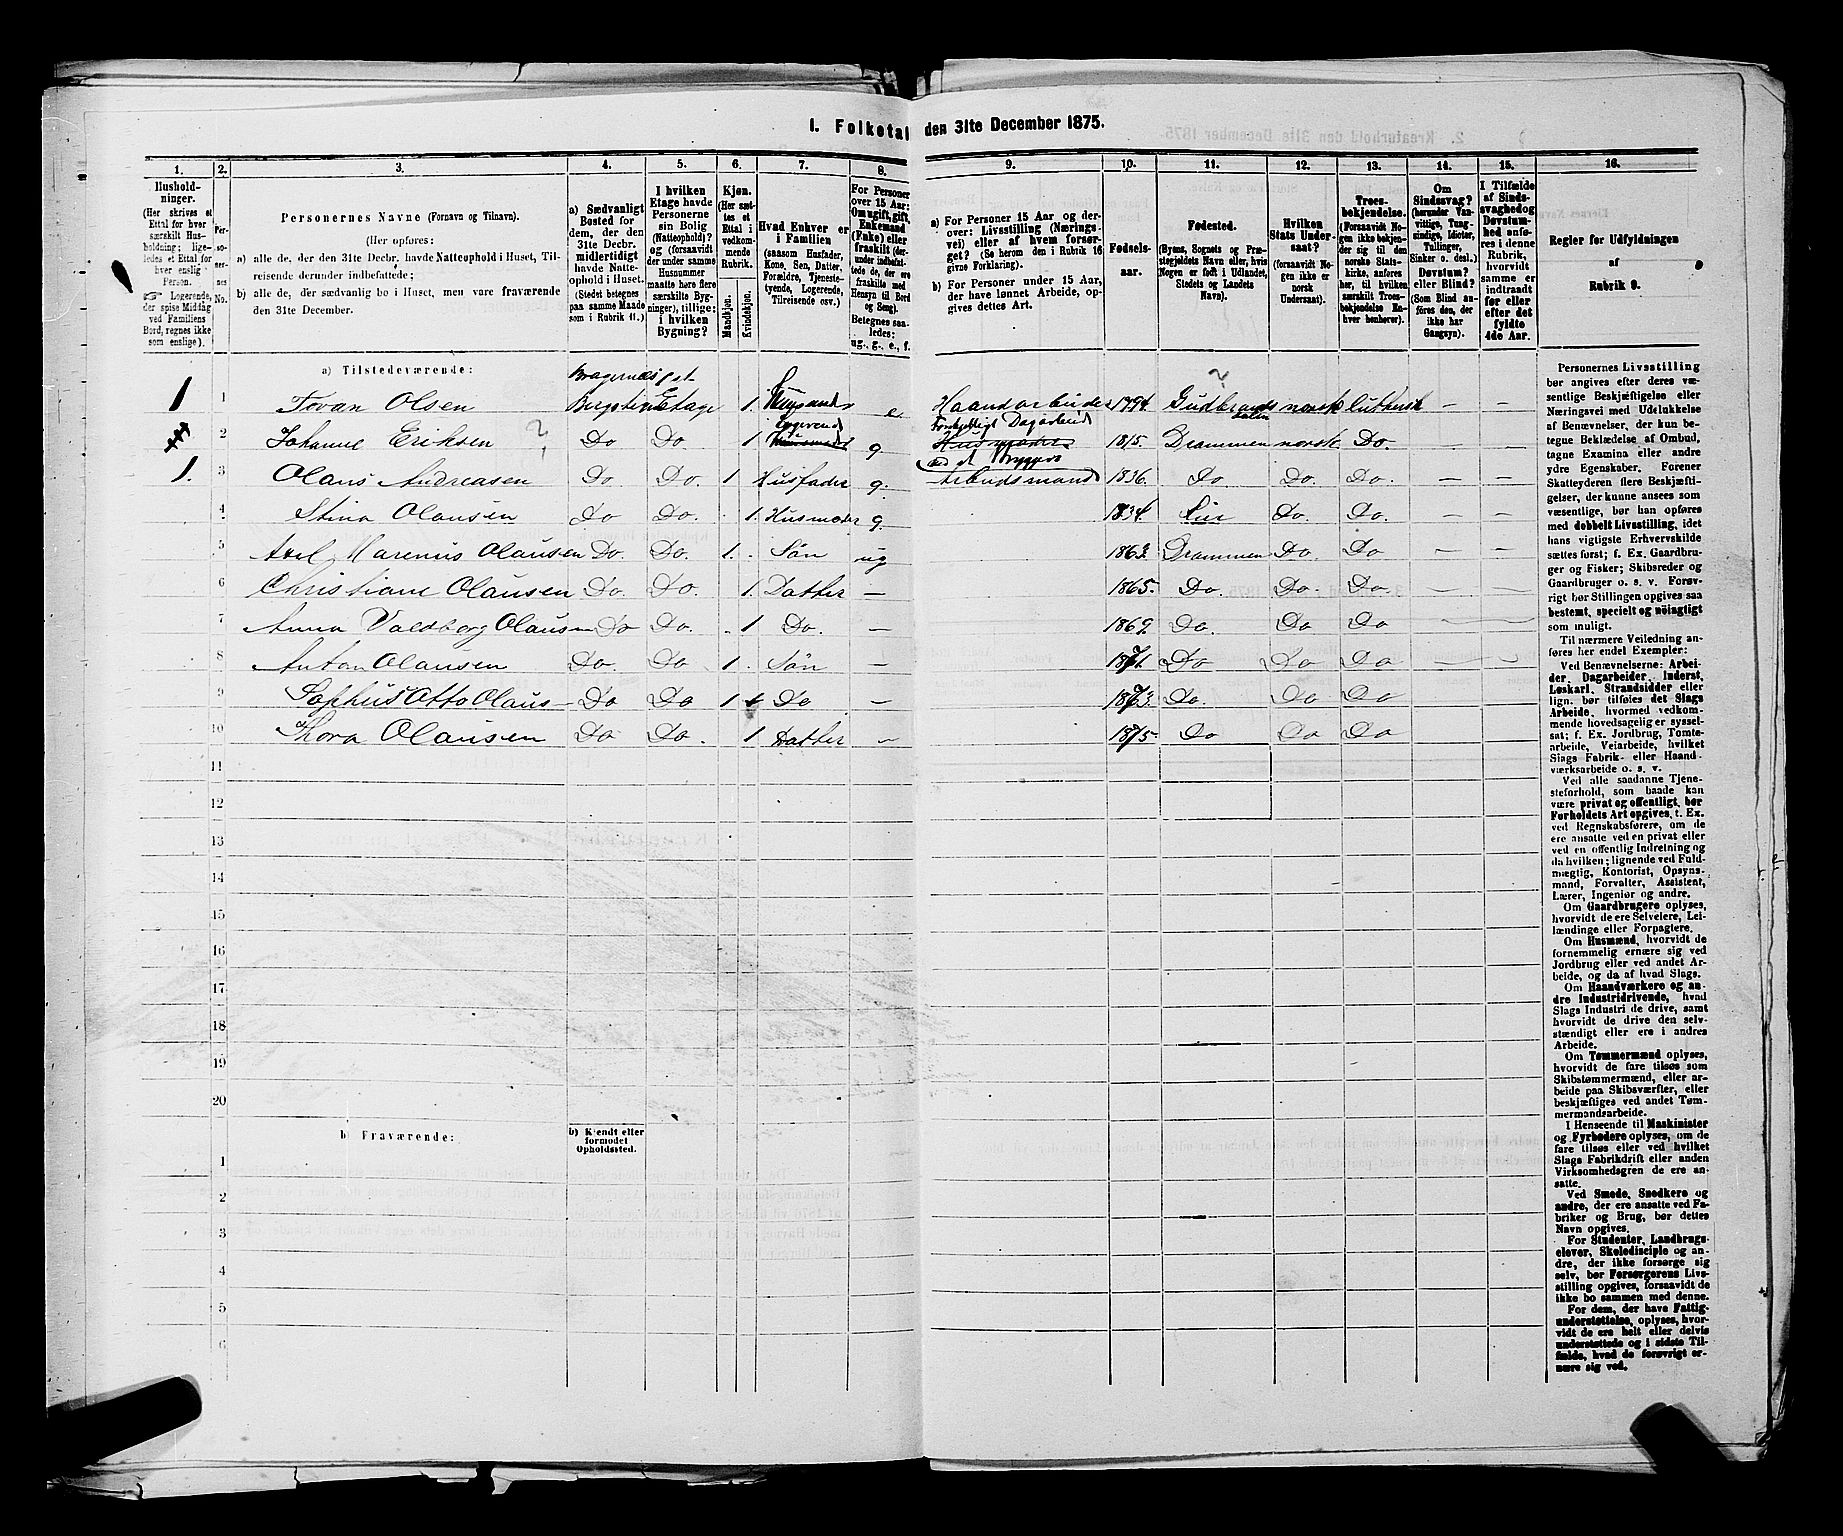 1. Folketal den 31te December 1875.
1. 2. 3. 4. 5. 6. 7. 8. 9. 10. 11. 12. 13. 14. 15. 16.
Husholdninger.
(Her skrives et
Ettal for hver
særskilt Husholdning;
ligeledes et Ettal for
hver enslig
Person.
☞ Logerende,
der spise Middag
ved Familiens
Bord, regnes ikke
som enslige).
Personernes No.
Personernes Navne (Fornavn og Tilnavn).
(Her opføres:
a) alle de, der den 31te Decbr. havde Natteophold i Huset, Tilreisende
derunder indbefattede;
b) alle de, der sædvanlig bo i Huset, men vare fraværende
den 31te December.
a) Sædvanligt
Bosted for
dem, der den
31te Decbr.
midlertidigt
havde Natteophold
i Huset.
(Stedet betegnes
paa samme Maade
som i Rubrik 11.)
I hvilken
Etage havde
Personerne
sin Bolig
(Natteophold)?
og (forsaavidt
der under samme
Husnummer
maatte høre flere
særskilte Bygninger),
tillige:
i hvilken
Bygning?
Kjøn.
(Her sættes
et
Ettal i
vedkommende
Rubrik.
Mandkjøn.
Kvindekjøn.
Hvad Enhver er
i Familien
(saasom Husfader,
Kone, Søn, Datter,
Forældre, Tjenestetyende,
Logerende,
Tilreisende osv.)
For Personer
over 15 Aar:
Om ugift, gift,
Enkemand
(Enke) eller
fraskilt
Betegnes saaledes:
ug., g., e., f.
a) For Personer 15 Aar og derover:
Livsstilling (Næringsvei)
eller af hvem forsørget?
(Se herom den i Rubrik 16
givne Forklaring).
b) For Personer under 15 Aar,
der have lønnet Arbeide, opgives
dettes Art.
Fødselsaar.
Fødested.
(Byens, Sognets og Præstegjeldets
Navn eller, hvis
Nogen er født i Udlandet,
Stedets og Landets
Navn).
Hvilken
Stats Undersaat?
(forsaavidt Nogen
ikke er
norsk
Undersaat).
Troesbekjendelse.
(Forsaavidt Nogen
ikke bekjender
sig til den
norske Statskirke,
anføres
her, til hvilken
særskilt Troesbekjendelse
Enhver
henhører).
Om
Sindssvag?
(herunder Vanvittige,
Tungsindige,
Idioter,
Tullinger,
Sinker o. desl.)
Døvstum?
eller Blind?
(Som Blind anføres
den, der
ikke har
Gangsyn).
I Tilfælde
af Sindssvaghed
og
Døvstumhed
anføres
i denne
Rubrik,
hvorvidt
samme er
indtraadt
før eller
efter det
fyldte
4de Aar.
Regler for Udfyldningen
af
Rubrik 9.
a) Tilstedeværende:
1 1 Tovan Olsen 1. e Haandarbeider 1794. Gudbrandsdalen norsk luthersk — —
2 Johanne Eriksen ? Do Do. 1. Logerende g Forskjelligt Dagarbeide 1815. Drammen norsk. Do. — —
1. 3 Olaus Andreasen Do. Do. 1 Husfader g. Arbeidsmand 1836. Do Do. Do. — —
4 Stina Olausen Do Do. 1. Husmoder g. 1834. Lier Do. Do. — —
5 Axel Marenius Olausen Do. Do. 1. Søn ug 1863. Drammen Do. Do — —
6 Christiane Olausen Do. Do. 1. Datter — 1865. Do. Do. Do — —
7 Anna Valdborg Olausen Do Do. 1 Do. — 1869. Do. Do Do — —
8 Anton Olausen Do. Do 1. Søn — 1871. Do Do Do — —
9 Sophus Otto Olaus— Do Do 1 Do — 1873. Do. Do Do
10 Thora Olausen Do Do. 1 Datter — 1875. Do Do Do
11
12
13
14
15
16
17
18
19
20
b) Fraværende:
b) Kjendt eller
formodet
Opholdssted.
1
2
3
4
5
6
Personernes Livsstilling
bør angives efter deres væsentlige
Beskjæftigelse eller
Næringsvei med Udelukkelse
af Benævnelser, der kun betegne
Beklædelse af Ombud,
tagne Examina eller andre
ydre Egenskaber. Forener
Skatteyderen flere Beskjæftigelser,
der kunne ansees som
væsentlige, bør han opføres
med dobbelt Livsstilling, idet
hans vigtigste Erhvervskilde
sættes først; f. Ex. Gaardbruger
og Fisker; Skibsreder og
Gaardbruger o. s. v. Forøvrigt
bør Stillingen opgives saa
bestemt, specielt og nöiagtigt
som muligt.
Til nærmere Veiledning anføres
her endel Exempler:
Ved Benævnelserne: Arbeider,
Dagarbeider, Inderst,
Løskarl, Strandsidder eller
lign. bør tilføies det Slags
Arbeide, hvormed vedkommende
hovedsagelig er sysselsat;
f. Ex. Jordbrug, Tomtearbeide,
Veiarbeide, hvilket
Slags Fabrik- eller Haandværksarbeide
o. s. v.
Ved alle saadanne Tjenesteforhold,
som baade kan
være privat og offentligt, bør
Forholdets Art opgives, t. Ex.
ved Regnskabsførere, om de
ere ansatte ved en privat eller
ved en offentlig Indretning og
da hvilken; lignende ved Fuldmægtig,
Kontorist, Opsynsmand,
Forvalter, Assistent,
Lærer, Ingeniør og andre.
Om Gaardbrugere oplyses,
hvorvidt de ere Selveiere, Leilændinge
eller Forpagtere.
Om Husmænd, hvorvidt de
fornemmelig ernære sig ved
Jordbrug eller ved andet Arbeide,
og da af hvad Slags.
Om Haandværkere og andre
Industridrivende, hvad
Slags Industri de drive, samt
hvorvidt de drive den selvstændigt
eller ere i andres
Arbeide.
Om Tømmermænd oplyses,
hvorvidt de fare tilsøs som
Skibstømmermænd, eller arbeide
paa Skibsværfter, eller
beskjæftiges ved andet Tømmermandsarbeide.
I Henseende til Maskinister
og Fyrbødere oplyses, om de
fare tilsøs eller ved hvilket
Slags Fabrikdrift eller anden
Virksomhedsgren de ere ansatte.
Ved Smede, Snedkere og
andre, der ere ansatte ved Fabriker
og Brug, bør dettes
Navn opgives.
For Studenter, Landbrugselever,
Skoledisciple og andre,
der ikke forsørge sig
selv, bør Forsørgerens Livsstilling
opgives, forsaavidt de
ikke bo sammen med denne.
For dem, der have Fattigunderstøttelse,
oplyses, hvorvidt
de ere helt eller delvis
understøttede og i sidste Tilfælde,
hvad de forøvrigt ernære
sig ved.